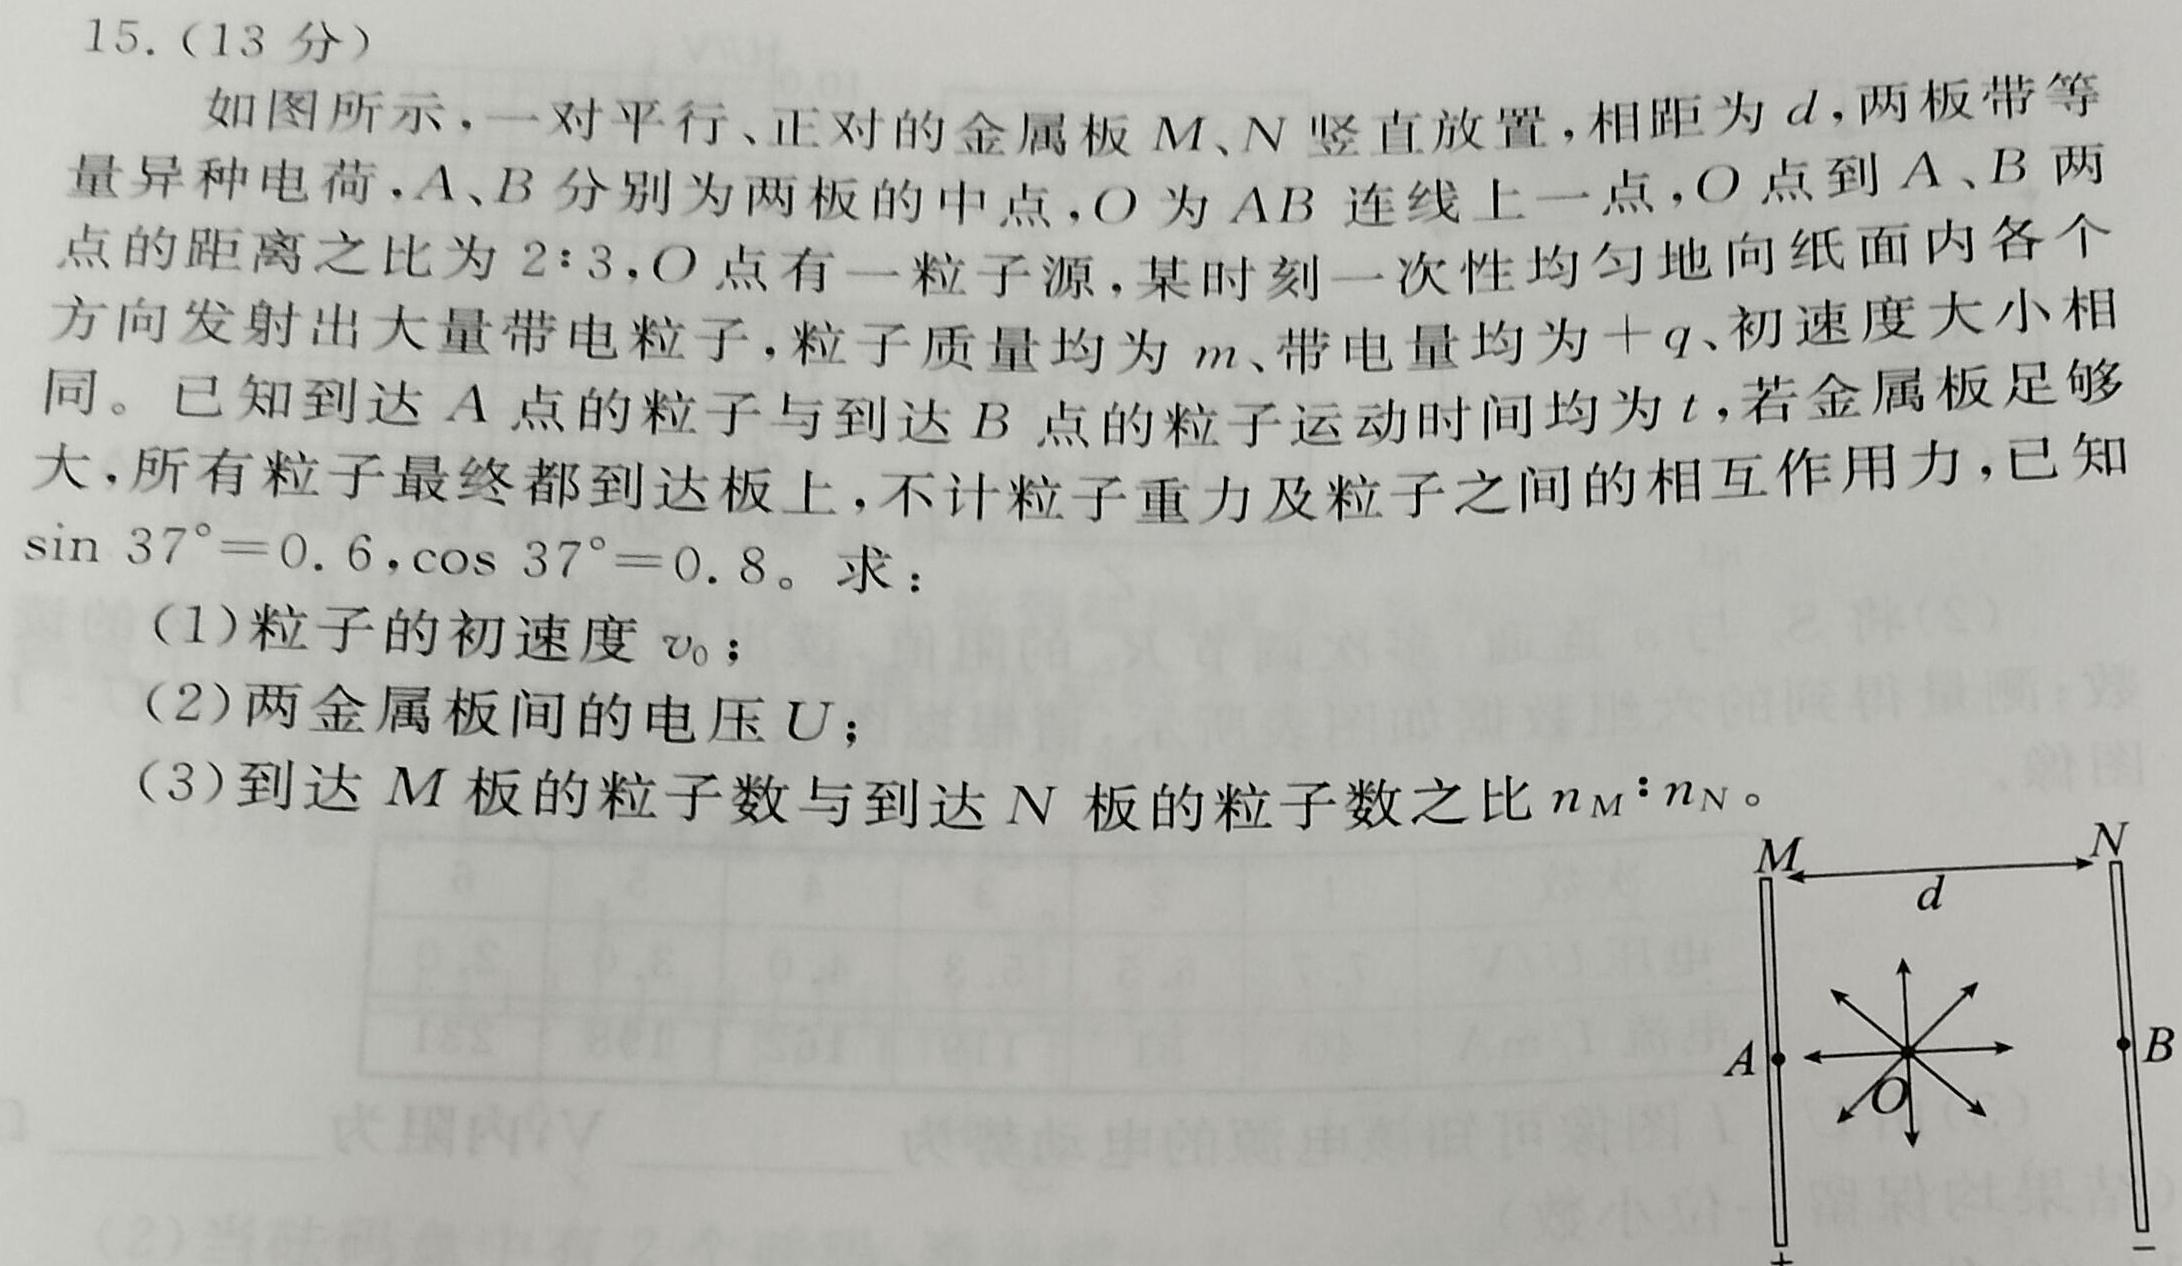 15.(13 分)
如图所示,一对平行、正对的金属板 M、N 竖直放置,相距为 d,两板带等
量异种电荷,A、B 分别为两板的中点,O 为 AB 连线上一点,O 点到 A、B 两
点的距离之比为 2∶3,O 点有一粒子源,某时刻一次性均匀地向纸面内各个
方向发射出大量带电粒子,粒子质量均为 m、带电量均为+q、初速度大小相
同。已知到达 A 点的粒子与到达 B 点的粒子运动时间均为 t,若金属板足够
大,所有粒子最终都到达板上,不计粒子重力及粒子之间的相互作用力,已知
sin 37°=0.6,cos 37°=0.8。求:
(1)粒子的初速度 v₀;
(2)两金属板间的电压 U;
(3)到达 M 板的粒子数与到达 N 板的粒子数之比 n_M∶n_N。
M
N
d
A
O
B
+
−